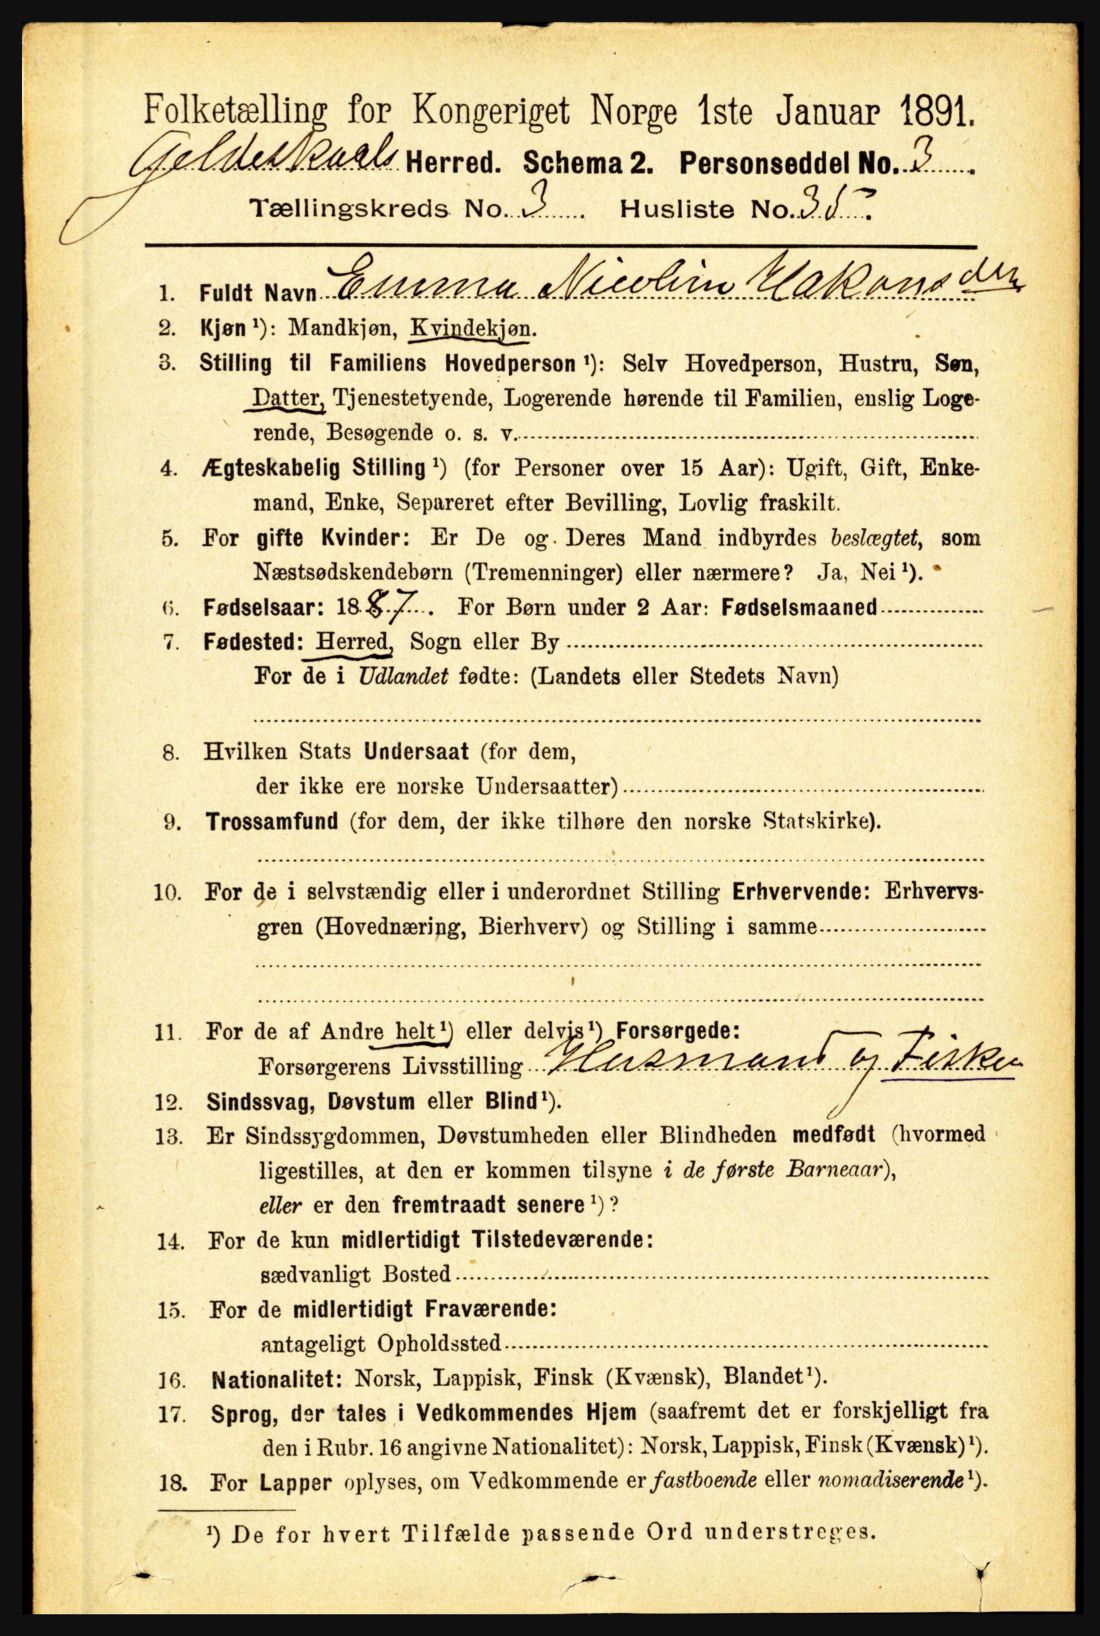 Folketælling for Kongeriget Norge 1ste Januar 1891.
Gildeskaals Herred. Schema 2. Personseddel No. 3.
Tællingskreds No. 3. Husliste No. 35.
1. Fuldt Navn Emma Nicoline Hakonsdtr
2. Kjøn ¹): Mandkjøn, Kvindekjøn.
3. Stilling til Familiens Hovedperson ¹): Selv Hovedperson, Hustru, Søn,
Datter, Tjenestetyende, Logerende hørende til Familien, enslig Loge-
rende, Besøgende o. s. v.
4. Ægteskabelig Stilling ¹) (for Personer over 15 Aar): Ugift, Gift, Enke-
mand, Enke, Separeret efter Bevilling, Lovlig fraskilt.
5. For gifte Kvinder: Er De og Deres Mand indbyrdes beslægtet, som
Næstsødskendebørn (Tremenninger) eller nærmere? Ja, Nei ¹).
6. Fødselsaar: 1887. For Børn under 2 Aar: Fødselsmaaned
7. Fødested: Herred, Sogn eller By
For de i Udlandet fødte: (Landets eller Stedets Navn)
8. Hvilken Stats Undersaat (for dem,
der ikke ere norske Undersaatter)
9. Trossamfund (for dem, der ikke tilhøre den norske Statskirke).
10. For de i selvstændig eller i underordnet Stilling Erhvervende: Erhvervs-
gren (Hovednæring, Bierhverv) og Stilling i samme
11. For de af Andre helt ¹) eller delvis ¹) Forsørgede:
Forsørgerens Livsstilling Husmand og Fisker
12. Sindssvag, Døvstum eller Blind ¹).
13. Er Sindssygdommen, Døvstumheden eller Blindheden medfødt (hvormed
ligestilles, at den er kommen tilsyne i de første Barneaar),
eller er den fremtraadt senere ¹)?
14. For de kun midlertidigt Tilstedeværende:
sædvanligt Bosted
15. For de midlertidigt Fraværende:
antageligt Opholdssted
16. Nationalitet: Norsk, Lappisk, Finsk (Kvænsk), Blandet ¹).
17. Sprog, der tales i Vedkommendes Hjem (saafremt det er forskjelligt fra
den i Rubr. 16 angivne Nationalitet): Norsk, Lappisk, Finsk (Kvænsk) ¹).
18. For Lapper oplyses, om Vedkommende er fastboende eller nomadiserende ¹).
¹) De for hvert Tilfælde passende Ord understreges.